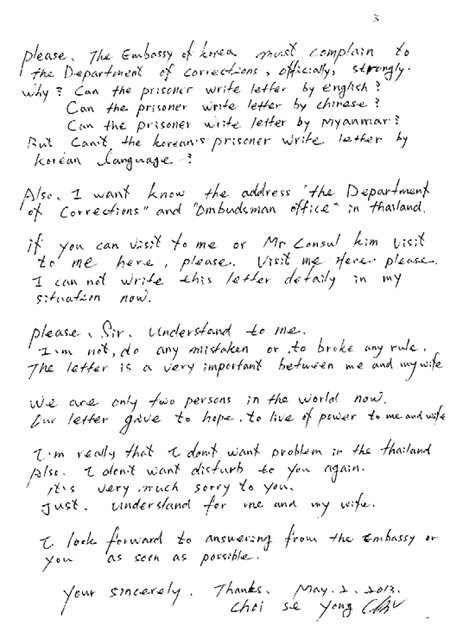 3
please. The Embassy of korea must complain to
the Department of corrections, officially, strongly.
why? Can the prisoner write letter by english?
Can the prisoner write letter by chinese?
Can the prisoner write letter by Myanmar?
But Can't the korean's prisoner write letter by
korean language?
Also. I want know the address "the Department
of Corrections" and "Ombudsman office" in thailand.
if you can visit to me or Mr Consul kim visit
to me here, please. Visit me Here please.
I can not write this letter detaily in my
situation now.
please, Sir. Understand to me.
I'm not, do any mistaken or to broke any rule.
The letter is a very important between me and my wife
We are only two persons in the world now.
Our letter give to hope. to live of power to me and wife
I'm really that I don't want problem in the thailand
Also. I don't want disturb to you again.
it's very much sorry to you.
Just. Understand for me and my wife.
I look forward to answering from the Embassy or
you as soon as possible.
Your sincerely. Thanks. May. 2. 2013.
Choi se yong